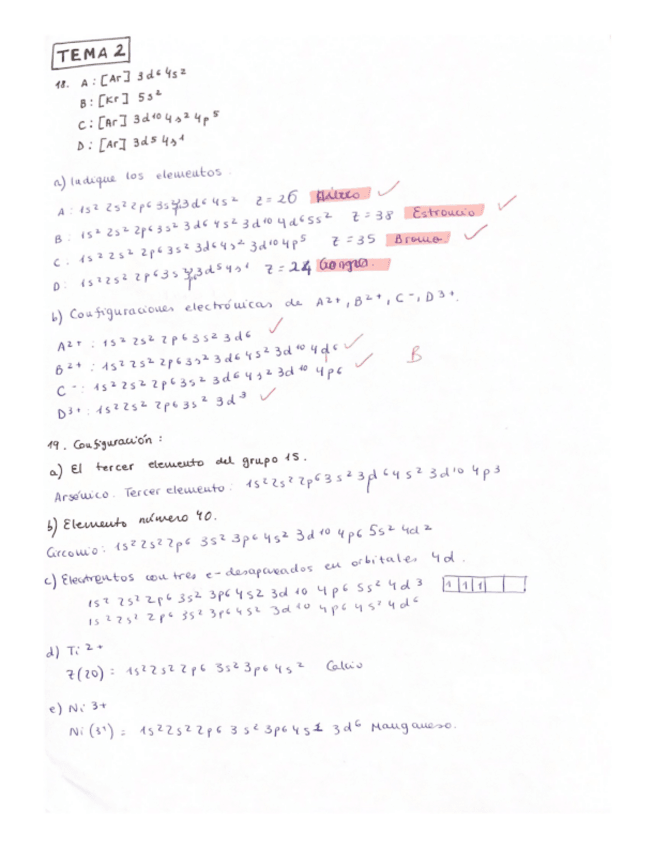 TEMA 2
18. A: [Ar] 3d6 4s2
B: [Kr] 5s2
C: [Ar] 3d10 4s2 4p5
D: [Ar] 3d5 4s1
a) Indique los elementos.
A: 1s2 2s2 2p6 3s2 3d6 4s2 Z = 26
B: 1s2 2s2 2p6 3s2 3d6 4s2 3d10 4d6 5s2 Z = 38 Estroncio
C: 1s2 2s2 2p6 3s2 3d6 4s2 3d10 4p5 Z = 35 Bromo
D: 1s2 2s2 2p6 3s 3d5 4s1 Z = 24
b) Configuraciones electrónicas de A2+, B2+, C-, D3+.
A2+: 1s2 2s2 2p6 3s2 3d6
B2+: 1s2 2s2 2p6 3s2 3d6 4s2 3d10 4d6
C-: 1s2 2s2 2p6 3s2 3d6 4s2 3d10 4p6
B
D3+: 1s2 2s2 2p6 3s2 3d3
19. Configuración:
a) El tercer elemento del grupo 15.
Arsénico. Tercer elemento: 1s2 2s2 2p6 3s2 3p6 4s2 3d10 4p3
b) Elemento número 40.
Circonio: 1s2 2s2 2p6 3s2 3p6 4s2 3d10 4p6 5s2 4d2
c) con tres e- desapareados en orbitales 4d.
1s2 2s2 2p6 3s2 3p6 4s2 3d10 4p6 5s2 4d3 1 1 1
1s2 2s2 2p6 3s2 3p6 4s2 3d10 4p6 4s2 4d6
d) Ti 2+
Z(20) = 1s2 2s2 2p6 3s2 3p6 4s2 Calcio
e) Ni 3+
Ni (3+) = 1s2 2s2 2p6 3s2 3p6 4s1 3d6 Manganeso.